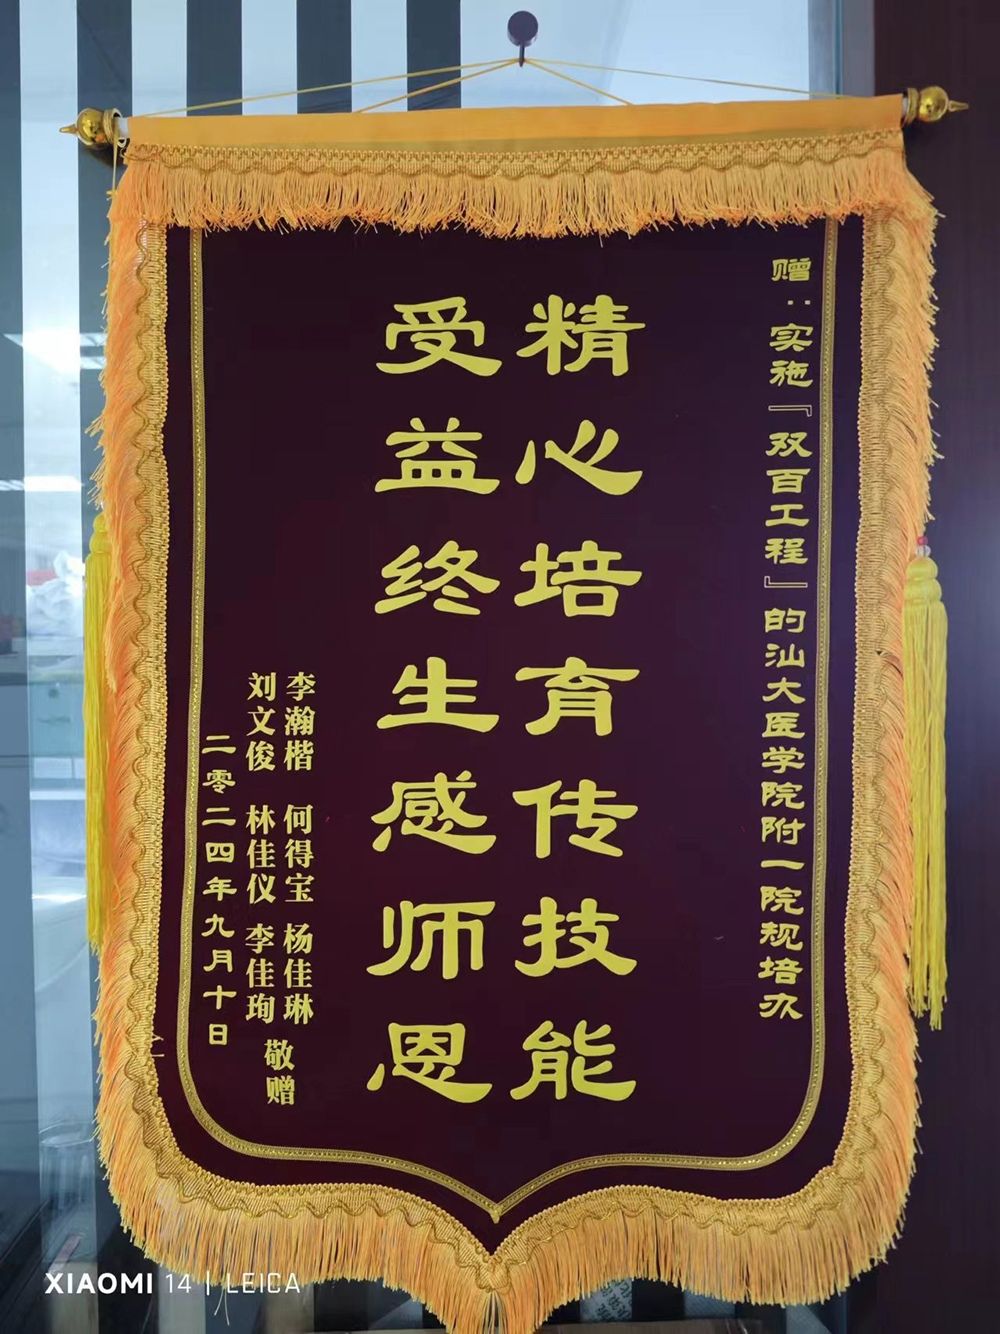 赠：实施『双百工程』的汕大医学院附一院规培办
精心培育传技能
受益终生感师恩
李瀚楷 何得宝 杨佳琳
刘文俊 林佳仪 李佳珣
敬赠
二零二四年九月十日
XIAOMI 14 | LEICA